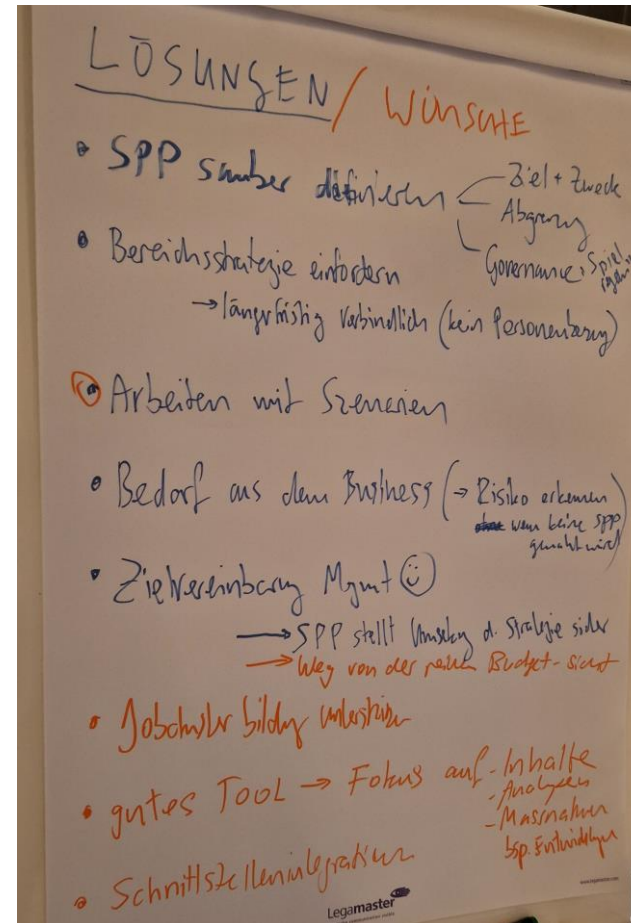 LÖSUNGEN / WÜNSCHE
• SPP sauber definieren – Ziel + Zweck
– Abgrenzung
– Governance, Spielregeln
• Bereichsstrategie einfordern
→ längerfristig verbindlich (kein Personenbezug)
• Arbeiten mit Szenarien
• Bedarf aus dem Business (→ Risiko erkennen
wenn keine SPP
gemacht wird)
• Zielvereinbarung Mgmt ☺
→ SPP stellt Umsetzung d. Strategie sicher
→ Weg von der reinen Budget-sicht
• Jobclusterbildung unterstützen
• gutes TOOL → Fokus auf - Inhalte
- Analysen
- Massnahmen
bsp. Entwicklungen
• Schnittstellenintegration
Legamaster